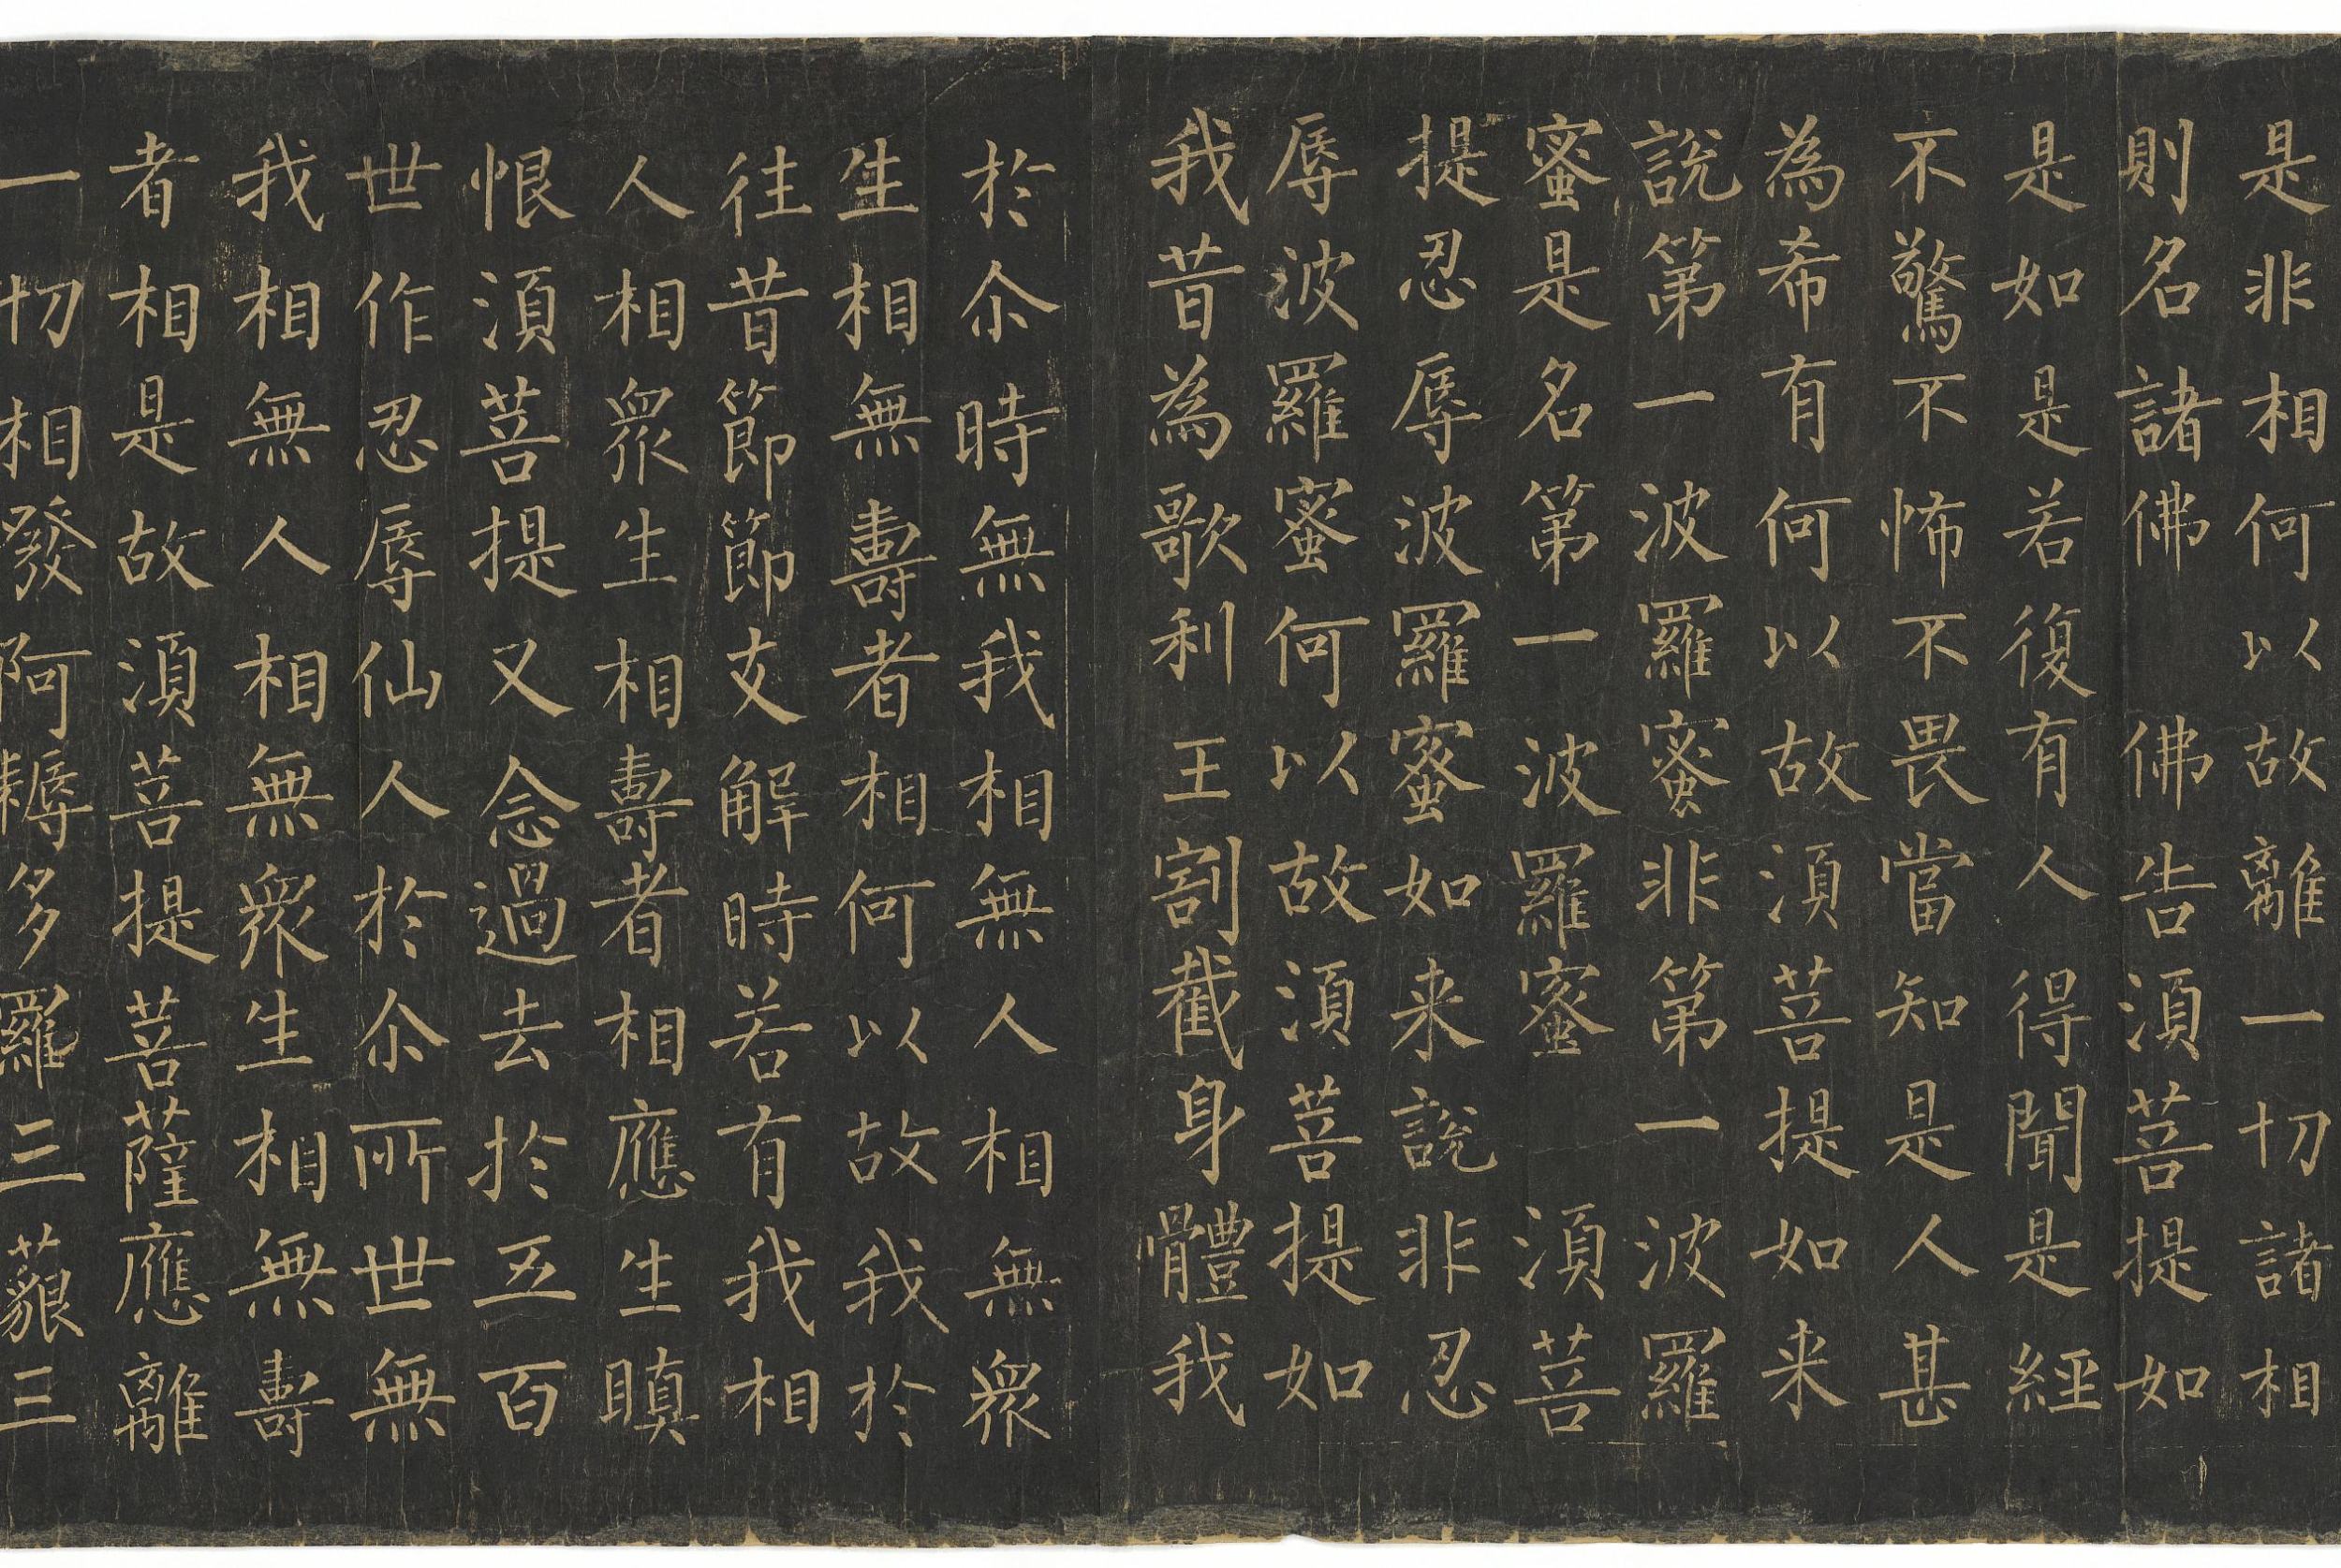 是非相何以故離一切諸相
則名諸佛　佛告湏菩提如
是如是若復有人得聞是經
不驚不怖不畏當知是人甚
為希有何以故湏菩提如来
說第一波羅蜜非第一波羅
蜜是名第一波羅蜜　湏菩
提忍辱波羅蜜如来說非忍
辱波羅蜜何以故湏菩提如
我昔為歌利王割截身體我
於尒時無我相無人相無衆
生相無壽者相何以故我於
往昔節節支解時若有我相
人相衆生相壽者相應生瞋
恨湏菩提又念過去於五百
世作忍辱仙人於尒所世無
我相無人相無衆生相無壽
者相是故湏菩提菩薩應離
一切相發阿耨多羅三藐三